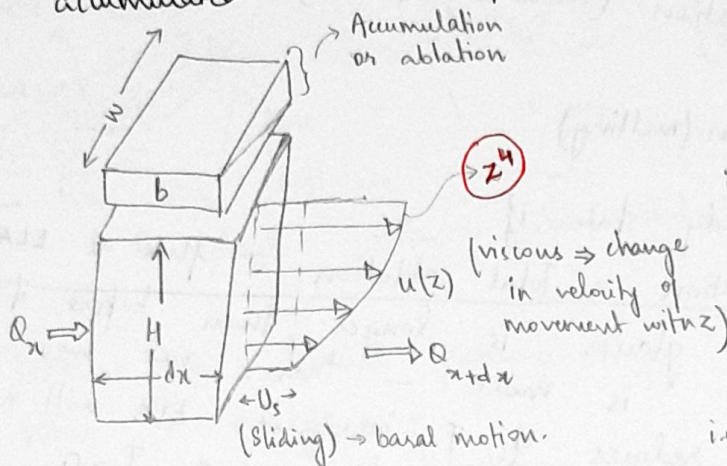 Accumulation
or ablation
w
b
z⁴
u(z)
(viscous ⇒ change
in velocity of
movement with z)
Qx
H
dx
Q x+dx
Us
(sliding) → basal motion.
i.e